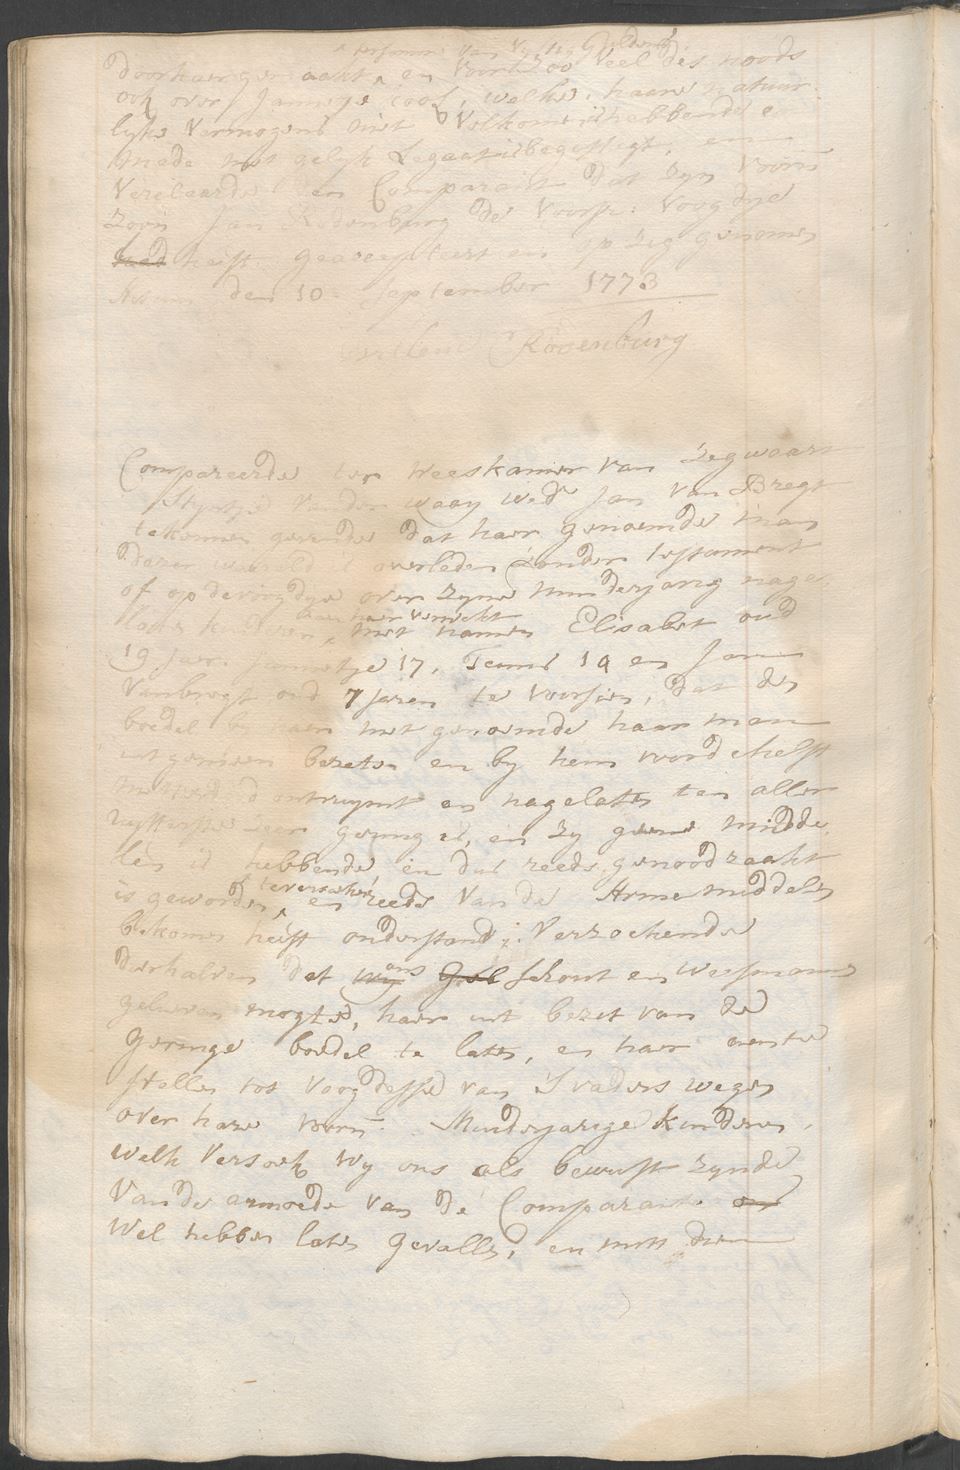 ter somme van vyftig Guldens
door haer gemaakt, en voor zoo veel des noods
ook over Jannetje Cool, welke haare natuur-
lyke vermogens niet volkomen hebbende en
mede met gelyk Legaat is begiftigt, en
verklaarde den Comparant dat zyn voorn
zoon Jan Rodenburg de voorsz: voogdye
heeft geaccepteert en op zig genomen
Actum den 10 September 1773
willem Rodenburg
Compareerde ter weeskamer van Zegwaart
Styntje van der waay wed Jan van Bregt
te kennen gevende dat haer genoemde man
dezer waereld is overleden zonder testament
of op de voogdye over zyne minderjarig nage-
aan haer verwekt
laate kinderen met namen Elisabet oud
19 jaer Jannetje 17, Teunis 14 en Jan
van bregt oud 7 jaren te voorsien, dat den
boedel by haer met genoemde haar man
in gemeen bezeten en by hem voor de helft
met er dood ontruymt en nagelaten ten aller
uytterste zeer gering is, en zy geene midde
len is hebbende, en dus reeds genoodzaakt
te versoeken
is geworden, en reeds van de Arme middelen
bekomen heeft onderstand; verzoekende
ons
derhalven dat wy schout en weesmannen
gelieven mogte, haer int bezit van de
geringe boedel te laten, en haer
stellen tot voogdesse van 's vaders wegen
over hare voorn. Minderjarige kinderen,
welk versoek wy ons als bewust zynde
van de armoede van de Comparante
wel hebben laten gevallen, en mits dien